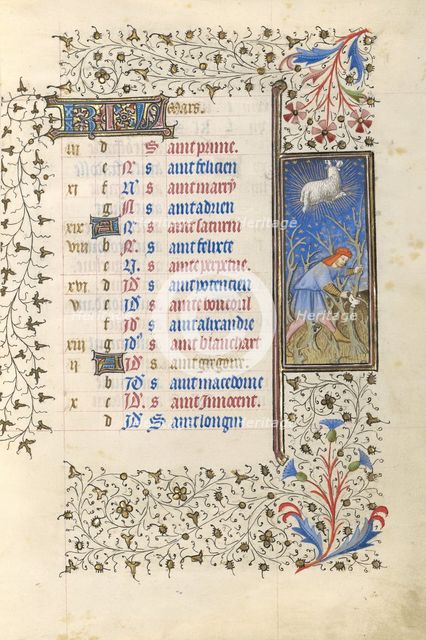 KL Mars.
iii d S aint prime.
N s aint felicien
xi f N s aint marry
g N s aint adrien
xix A N s aint saturin
viii b N s aint felixte
c N s ainte perpetue.
xvi d Id s aint potencien
v e Id s ainte boneoul
f Id s aint alixandre
xiii g Id s aint blanchart
ii A Id s aint gregoire.
b Id s aint macedome
x c Id s aint Innocent.
d Id S aint longin
heritage
Heritage
Heritage
Images